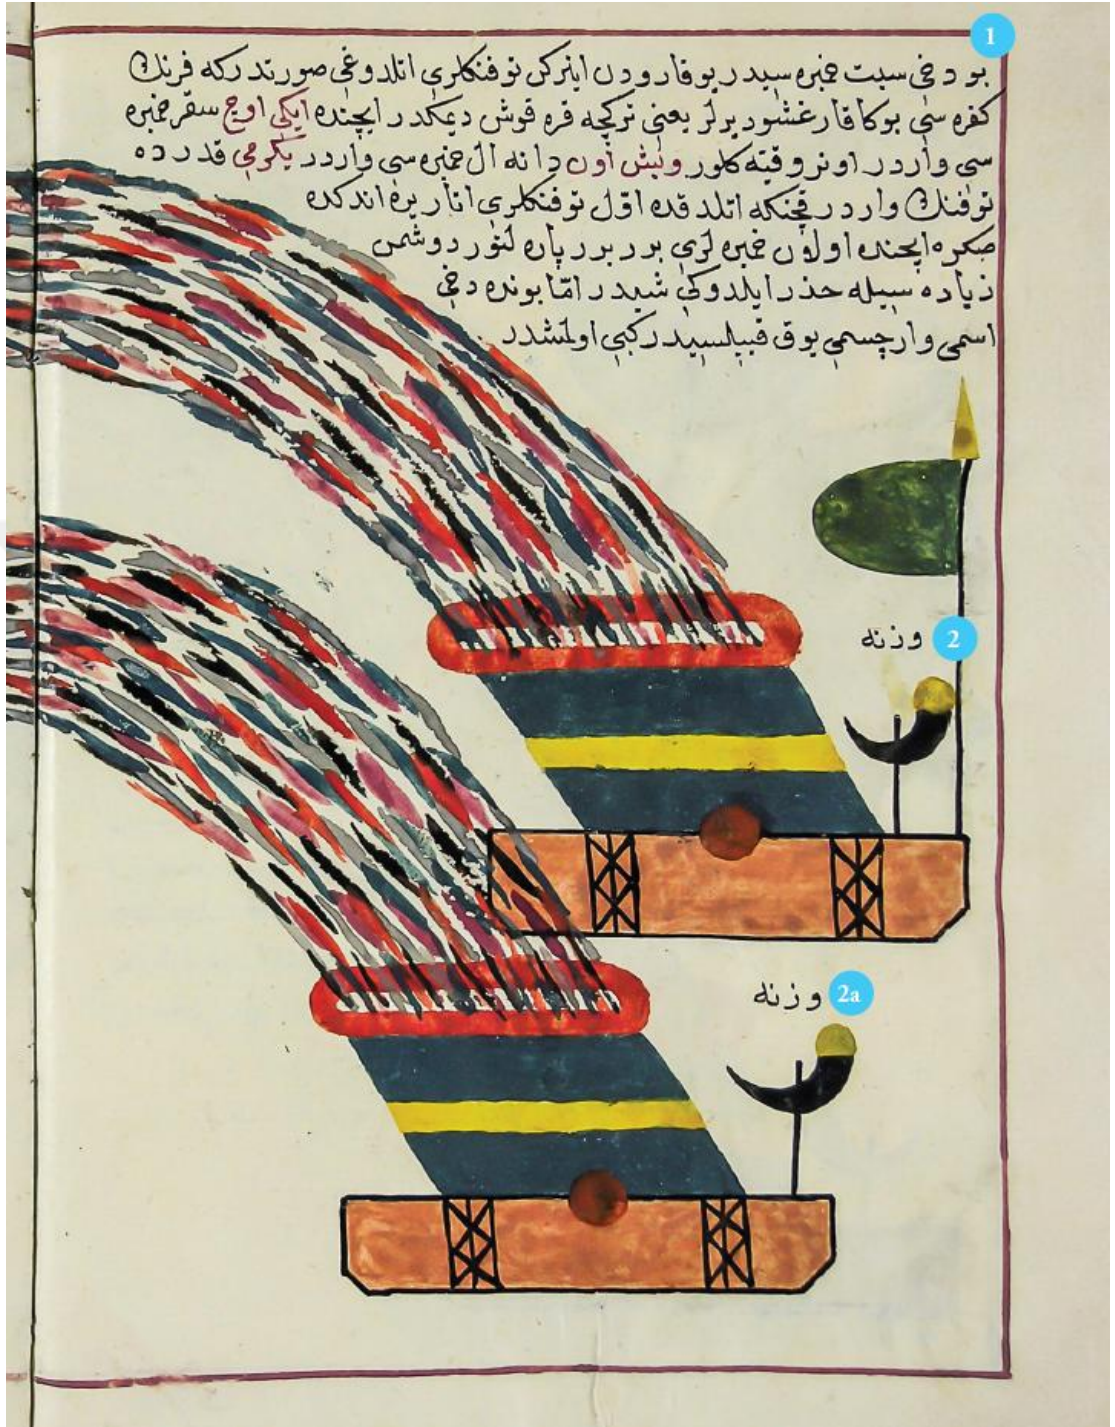 1
بو دخی سبت خمبره سیدر یوقارودن اینرکن توفنکلری اتلدوغی صورتدرکه فرنك
کفره سی بوکا قارغشو دیرلر یعنی ترکجه قره قوش دیمکدر ایچنده ایکی اوچ سقر خمبره
سی واردر اونر وقیته کلور وبش اون دانه ال خمبره سی واردر یکرمی قدرده
توفنك واردر قچنکه اتلدقده اوّل توفنکلری اتار یره اندکده
صکره ایچنده اولان خمبره لری برر برر پاره لنور دوشمن
زیاده سیله حذر ایلدوکی شیدر امّا بونده دخی
اسمی وار جسمی یوق قبیلسیدر کبی اولمشدر
وزنه 2
وزنه 2a